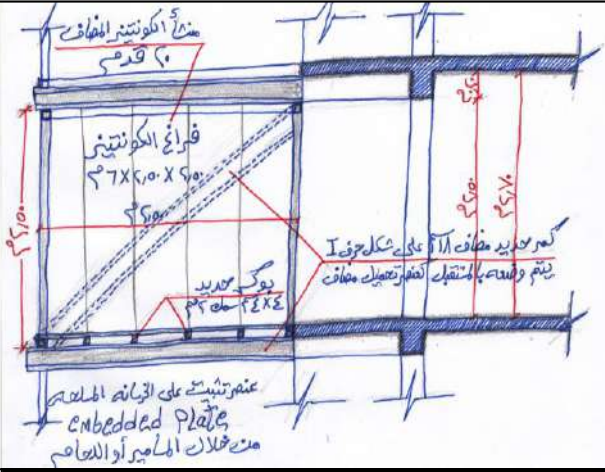 منشأ الكونتينر المضاف
٢٠ قدم
فراغ الكونتينر
٢,٥٠ × ٢,٥٠ × ٦م
٢,٥٠م
٢,٥٠م
٢,٥٠م
٢,٧٠م
كمر حديد مضاف على شكل حرف I
يتم وضعه بالمستقبل كعنصر تحميل مضاف
بوكس حديد
٤×٤ سمك ٢مم
عنصر تثبيت على الخرسانة المسلحة
embedded Plate
من خلال المسامير أو اللحام